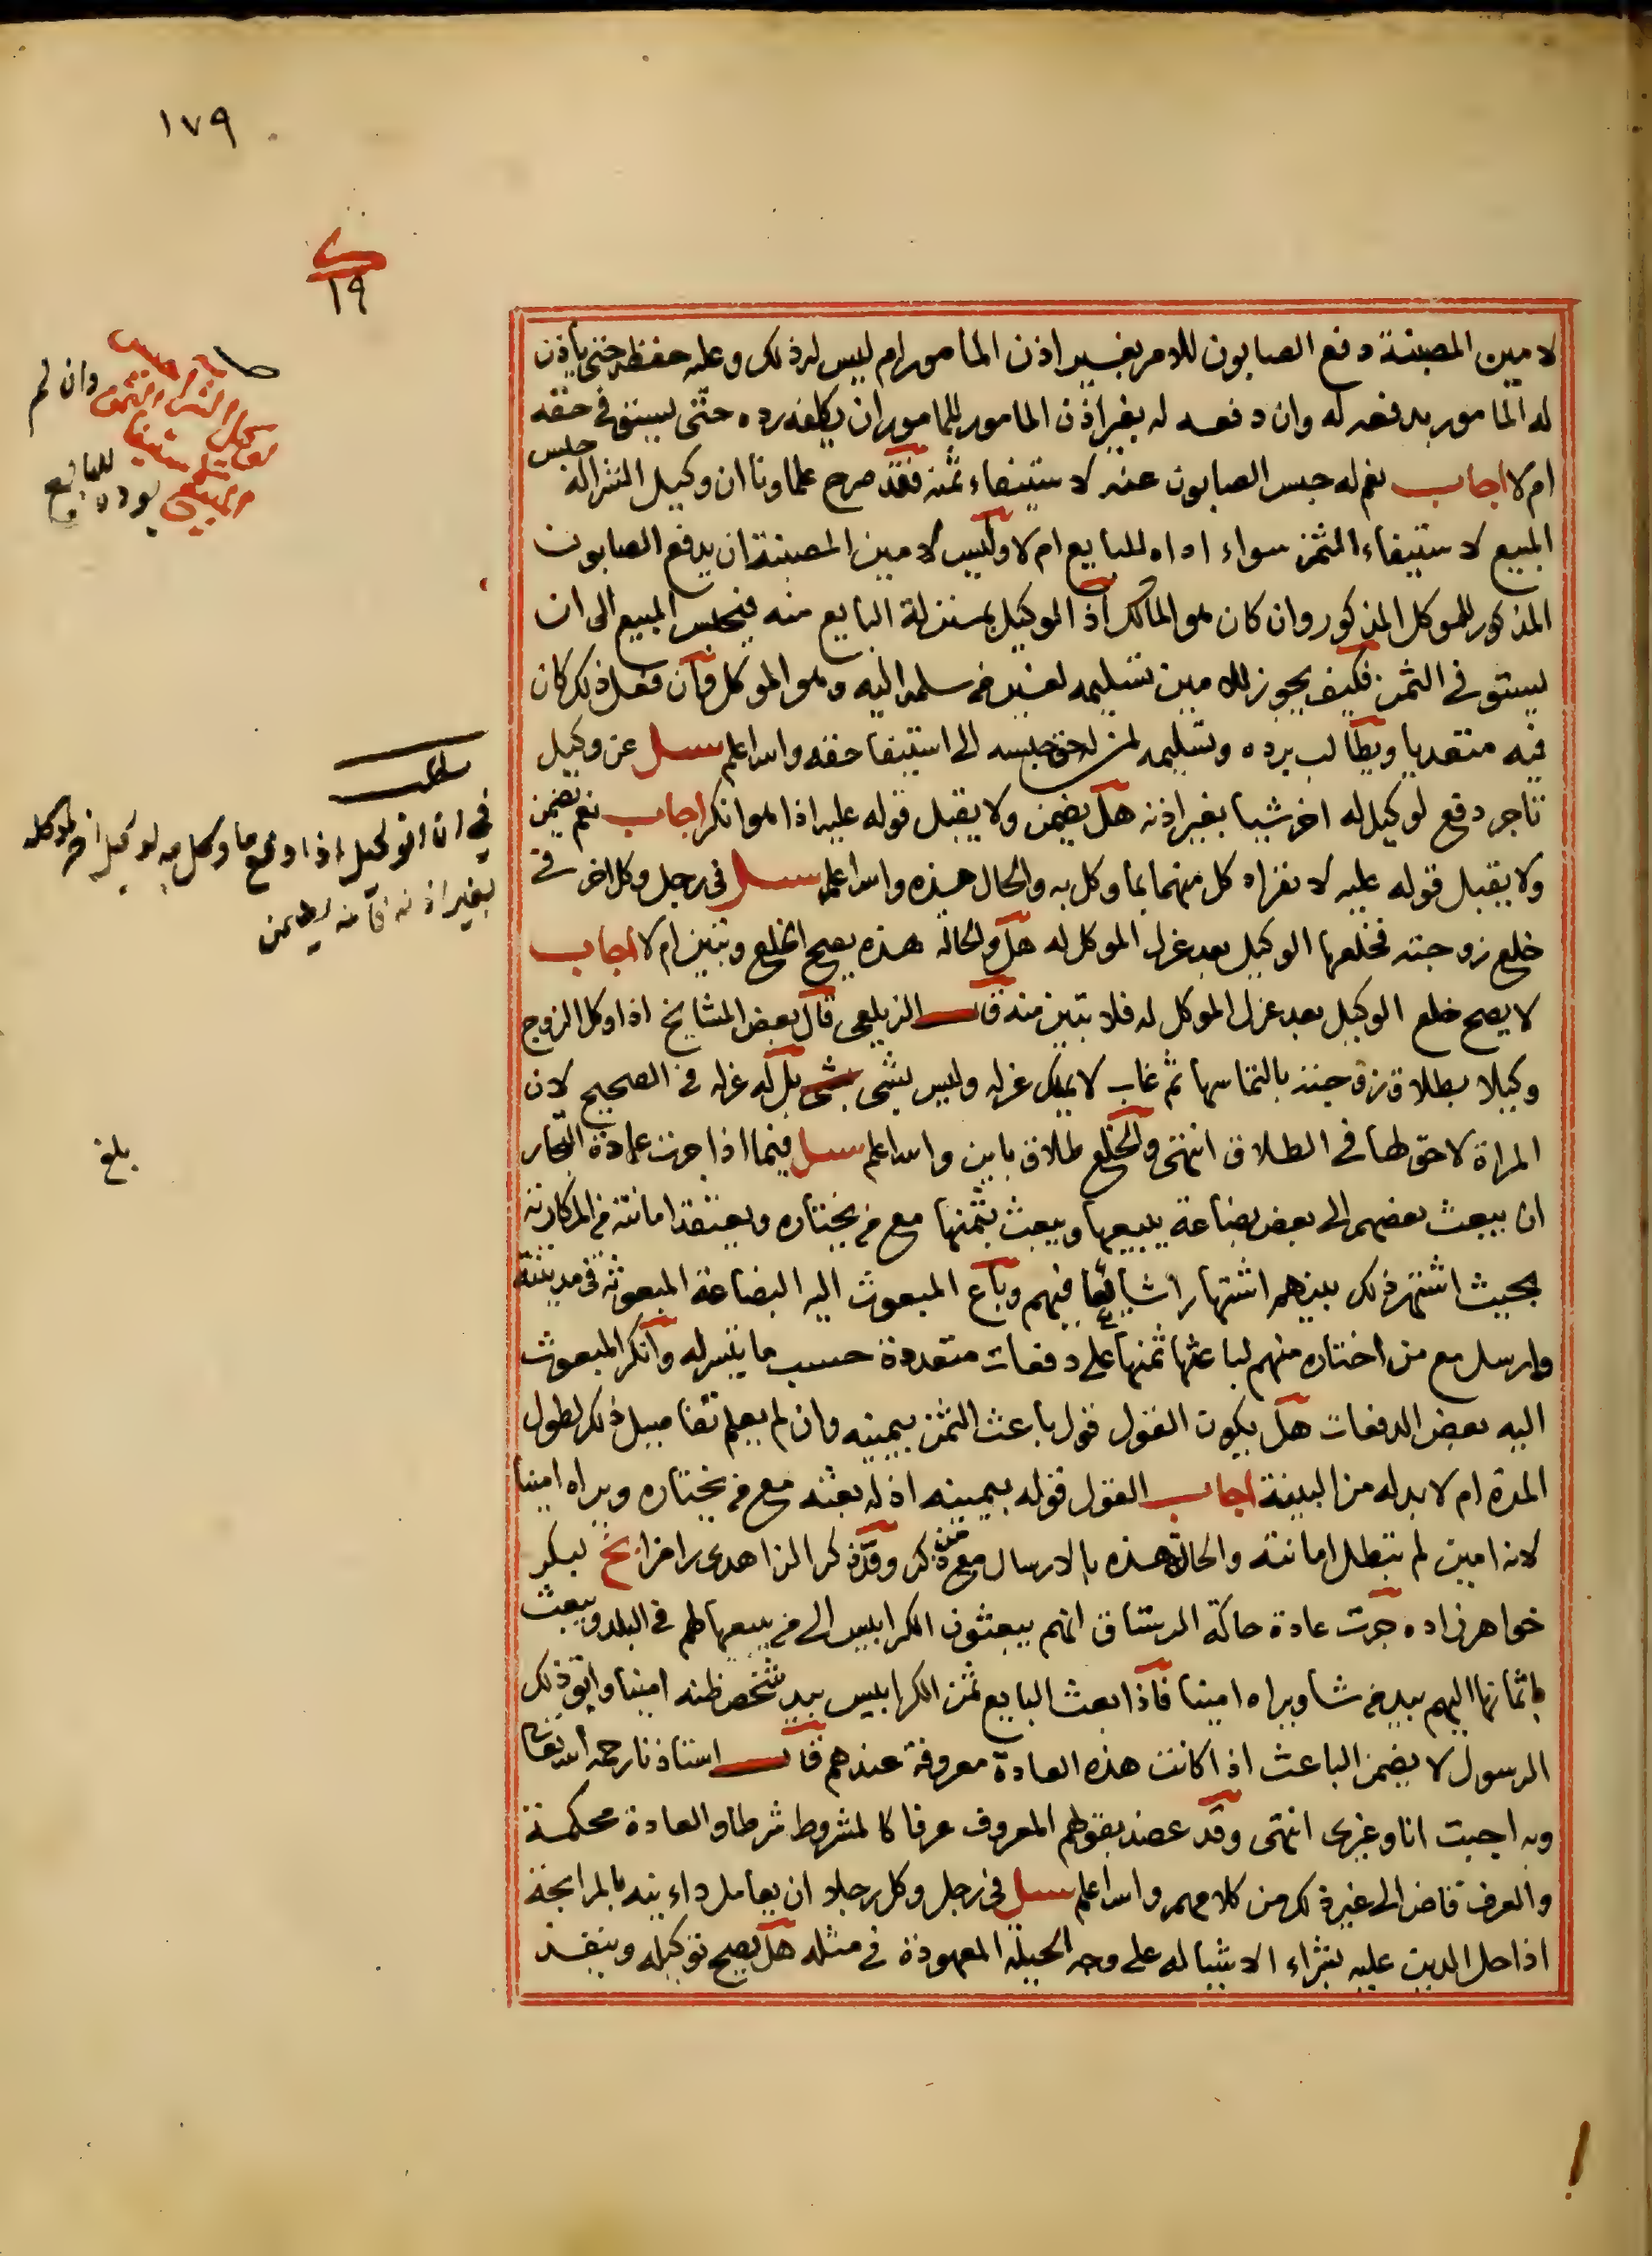 ١٧٩
١٩
لامين المصبنة دفع الصابون للامر بغير اذن المامور ام ليس له ذلك وعليه حفظه حتى ياذن
له المامور بدفعه له وان دفعه له بغير اذن المامور للمامور ان يكلفه رده حتى يستوفى حقه
ام لا اجاب نعم له حبس الصابون عنه لاستيفاء ثمنه فقد صرح علماونا ان وكيل الشرا له حبس
المبيع لاستيفاء الثمن سواء اداه للبايع ام لا وليس لامين المصبنة ان يدفع الصابون
المذكور للموكل المذكور وان كان هو المالك اذ الوكيل بمنزلة البايع منه فيحبس المبيع الى ان
يستوفى الثمن فكيف يجوز للامين تسليمه لغير من سلمه اليه وهو الموكل فان فعل ذلك كان
فيه متعديا ويطالب برده وتسليمه لمن له حق حبسه الى استيفا حقه والله اعلم سىل عن وكيل
تاجر دفع لوكيل له اخر شيا بغير اذنه هل يضمن ولا يقبل قوله عليه اذا هو انكر اجاب نعم يضمن
ولا يقبل قوله عليه لانفراد كل منهما بما وكل به والحال هذه والله اعلم سىل فى رجل وكل اخر فى
خلع زوجته فخلعها الوكيل بعد عزل الموكل له هل والحالة هذه يصح الخلع وتبين ام لا اجاب
لا يصح خلع الوكيل بعد عزل الموكل له فلا تبين منه قال الزيلعى قال بعض المشايخ اذا وكل الزوج
وكيلا بطلاق زوجته بالتماسها ثم غاب لا يملك عزله وليس بشى بل له عزله فى الصحيح لان
المراة لا حق لها فى الطلاق انتهى والخلع طلاق باين والله اعلم سىل فيما اذا جرت عادة التجار
ان يبعث بعضهم الى بعض بضاعة يبيعها ويبعث بثمنها مع من يختاره ويعتقد امانته من المكارية
بحيث اشتهر ذلك بينهم اشتهارا شايعا فيهم وباع المبعوث اليه البضاعة المبعوثة فى مدينته
وارسل مع من اختاره منهم لباعثها ثمنها على دفعات متعددة حسب ما تيسر له وانكر المبعوث
اليه بعض الدفعات هل يكون القول قول باعث الثمن بيمينه وان لم يعلم تفاصيل ذلك لطول
المدة ام لا بد له من البينة اجاب القول قوله بيمينه اذ له بعثه مع من يختاره ويراه امينا
لانه امين لم تبطل امانته والحالة هذه بالارسال مع من ذكر وقد ذكر الزاهدى رامزا بخ لبكر
خواهر زاده جرت عادة حاكة الرستاق انهم يبعثون الكرابيس الى من يبيعها لهم فى البلد ويبعث
باثمانها اليهم بيد من شا ويراه امينا فاذا بعث البايع ثمن الكرابيس بيد شخص ظنه امينا وابق ذلك
الرسول لا يضمن الباعث اذا كانت هذه العادة معروفة عندهم قال استاذنا رحمه الله تعالى
وبه اجبت انا وغيرى انتهى وقد عضد بقولهم المعروف عرفا كالمشروط شرطا والعادة محكمة
والعرف قاض الى غير ذلك من كلامهم والله اعلم سىل فى رجل وكل رجلا ان يعامل داءينه بالمرابحة
اذا حل الدين عليه بشراء الاشيا له على وجه الحيلة المعهودة فى مثله هل يصح توكيله وينفذ
وكيل الشرا
وان لم
للبايع
مطلب
فى ان الوكيل اذا دفع ما وكل به لوكيل اخر لموكله
بغير اذنه فانه يضمن
بلغ